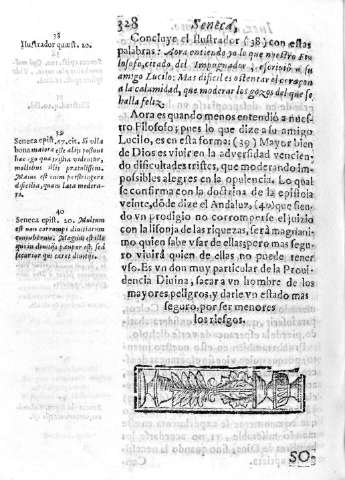 328 Seneca,
38
Ilustrador quæst. 20.
Concluye el Ilustrador (38) con estas
palabras: Aora entiendo yo lo que nuestro Fi-
losofo, citado del Impugnador, escrivió a su
amigo Lucilo: Mas dificil es ostentar el coraçon
a la calamidad, que moderar los gozos del que se
halla feliz.
Aora es quando menos entendió a nuestro
Filosofo; pues lo que dize a su amigo
Lucilo, es en esta forma: (39) Mayor bien
de Dios es viuir en la adversidad vencien-
do dificultades tristes, que moderando im-
possibles alegres en la opulencia. Lo qual
se confirma con la dotrina de la epistola
veinte, dõde dize el Andaluz, (40) que sien-
do vn prodigio no corromperse el juizio
con la lisonja de las riquezas, será magnani-
mo quien sabe vsar de ellas; pero mas segu-
ro viuirá quien de ellas no puede tener
vso. Es vn don muy particular de la Proui-
dencia Diuina, sacar a vn hombre de los
mayores peligros, y darle vn estado mas
seguro, por ser menores
los riesgos.
39
Seneca epist.
bona maiora esse aliis possunt
hac
mollibus aliis prætulissem.
Maius est enim perfringere
dificilia, quam læta mode-
rari.
40
Seneca epist. 20. Multum
est non corrumpi diuitiarum
contubernio. Magnus est ille
qui in diuitijs pauper est: sed
securior qui caret diuitijs.
SO-